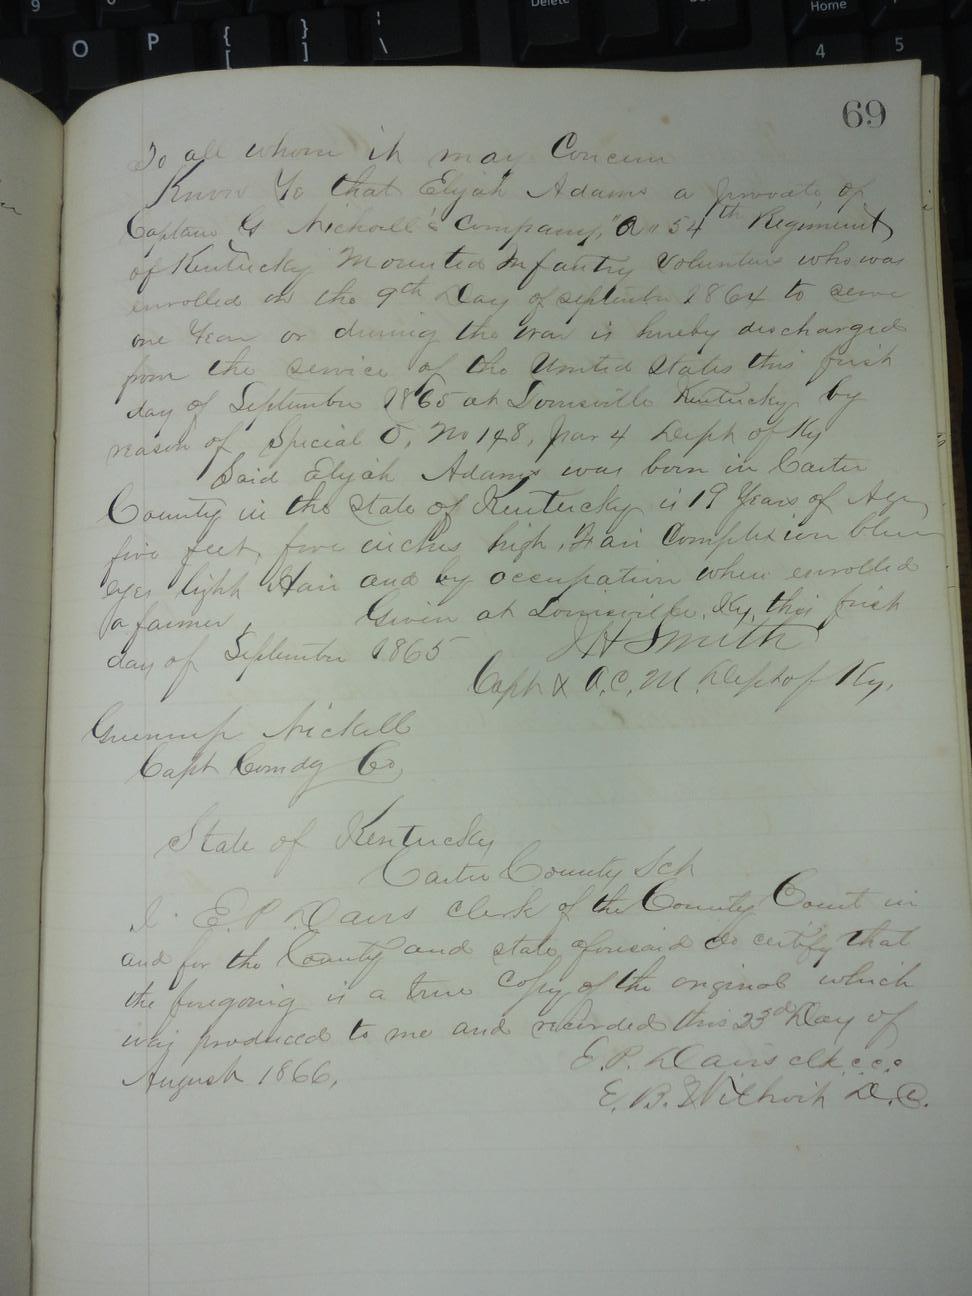 9 0
Delete
Home
O P { [ } ] | \
4 5
69
To all whom it may Concern
Know Ye that Elijah Adams a private of
Captain G Nickell's Company, "A" 54th Regiment
of Kentucky Mounted Infantry Volunteers who was
enrolled on the 9th Day of September 1864 to serve
one Year or during the war is hereby discharged
from the service of the United States this first
day of September 1865 at Louisville Kentucky by
reason of Special O, No 148, par 4 Dept of Ky
Said Elijah Adams was born in Carter
County in the State of Kentucky is 19 Years of Age
five feet, five inches high, Fair Complexion blue
eyes light Hair and by occupation when enrolled
a farmer, Given at Louisville, Ky, this first
day of September 1865 J H Smith
Capt & A.C.M. Dept of Ky,
Greenup Nickell
Capt Comdg Co,
State of Kentucky
Carter County Sct
I. E.P. Davis clerk of the County Court in
and for the County and state aforesaid do certify that
the foregoing is a true Copy of the original which
was produced to me and recorded this 23d Day of
August 1866, E.P. Davis clk.c.c.c
E. B. D.C.